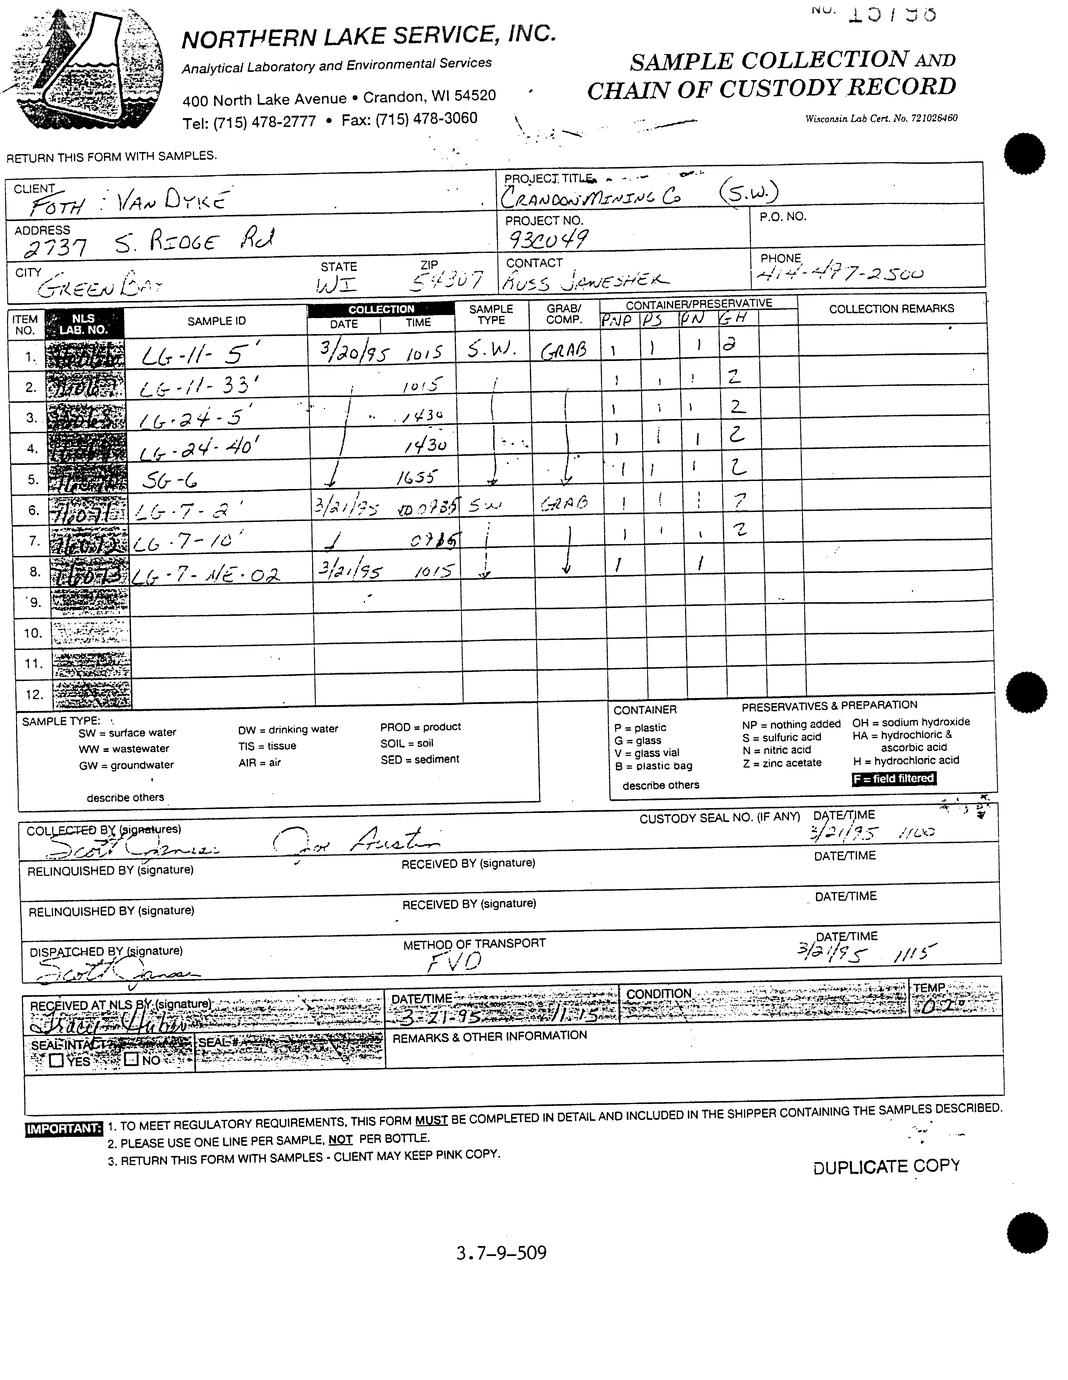 NO. 15798
NORTHERN LAKE SERVICE, INC.
Analytical Laboratory and Environmental Services
400 North Lake Avenue • Crandon, WI 54520
Tel: (715) 478-2777 • Fax: (715) 478-3060
SAMPLE COLLECTION AND
CHAIN OF CUSTODY RECORD
Wisconsin Lab Cert. No. 721026460
RETURN THIS FORM WITH SAMPLES.
CLIENT
FOTH : VAN DYKE
PROJECT TITLE
CRANDON MINING CO (S.W.)
ADDRESS
2737 S. RIDGE Rd
PROJECT NO.
93C049
P.O. NO.
CITY STATE ZIP
GREEN BAY WI 54307
CONTACT
RUSS JANESHEK
PHONE
414-497-2500
ITEM NO. NLS LAB. NO. SAMPLE ID COLLECTION DATE TIME SAMPLE TYPE GRAB/COMP. CONTAINER/PRESERVATIVE COLLECTION REMARKS
PNP PS PN GH
1. LG-11-5' 3/20/95 1015 S.W. GRAB 1 1 1 2
2. LG-11-33' 1015 1 1 1 2
3. LG-24-5' 1430 1 1 1 2
4. LG-24-40' 1430 1 1 1 2
5. SG-6 1655 1 1 1 2
6. 76071 LG-7-2' 3/21/95 0935 SW GRAB 1 1 1 2
7. 76072 LG-7-10' 1 1 1 2
8. 76073 LG-7-NE-02 3/21/95 1015 1 1
9.
10.
11.
12.
SAMPLE TYPE:
SW = surface water DW = drinking water PROD = product
WW = wastewater TIS = tissue SOIL = soil
GW = groundwater AIR = air SED = sediment
describe others
CONTAINER
P = plastic
G = glass
V = glass vial
B = plastic bag
describe others
PRESERVATIVES & PREPARATION
NP = nothing added OH = sodium hydroxide
S = sulfuric acid HA = hydrochloric &
N = nitric acid ascorbic acid
Z = zinc acetate H = hydrochloric acid
F = field filtered
COLLECTED BY (signatures) CUSTODY SEAL NO. (IF ANY) DATE/TIME
Scott Jansen Joe Austin 3/21/95 1100
RELINQUISHED BY (signature) RECEIVED BY (signature) DATE/TIME
RELINQUISHED BY (signature) RECEIVED BY (signature) DATE/TIME
DISPATCHED BY (signature) METHOD OF TRANSPORT DATE/TIME
Scott Jansen FVD 3/21/95 1115
RECEIVED AT NLS BY (signature) DATE/TIME CONDITION TEMP
Tracy 3-21-95 11:15 02°
SEAL INTACT SEAL # REMARKS & OTHER INFORMATION
YES NO
IMPORTANT: 1. TO MEET REGULATORY REQUIREMENTS, THIS FORM MUST BE COMPLETED IN DETAIL AND INCLUDED IN THE SHIPPER CONTAINING THE SAMPLES DESCRIBED.
2. PLEASE USE ONE LINE PER SAMPLE, NOT PER BOTTLE.
3. RETURN THIS FORM WITH SAMPLES - CLIENT MAY KEEP PINK COPY.
DUPLICATE COPY
3.7-9-509